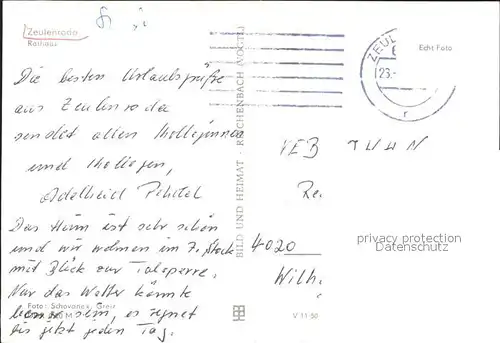 Zeulenroda
Rathaus
Die besten Urlaubsgrüße
aus Zeulenroda
sendet allen Kolleginnen
und Kollegen,
Adelheid
Das Heim ist sehr schön
und wir wohnen im 7. Stock
mit Blick zur Talsperre.
Nur das Wetter könnte
besser sein, es regnet
bis jetzt jeden Tag.
Foto: Schovanek, Greiz
BILD UND HEIMAT · REICHENBACH (VOGTL)
V 11 50
Echt Foto
ZEUL
23.
VEB
Re.
4020
Wilh.
privacy protection
Datenschutz